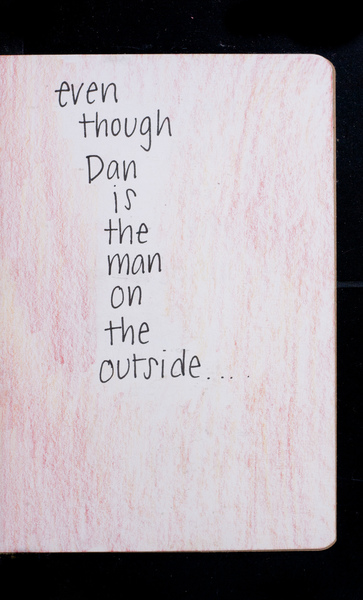 even
though
Dan
is
the
man
on
the
outside....